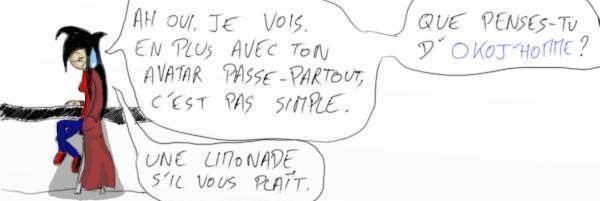 AH OUI, JE VOIS.
EN PLUS AVEC TON
AVATAR PASSE-PARTOUT,
C'EST PAS SIMPLE.
QUE PENSES-TU
D'OKOJ'HOMME?
UNE LIMONADE
S'IL VOUS PLAÎT.